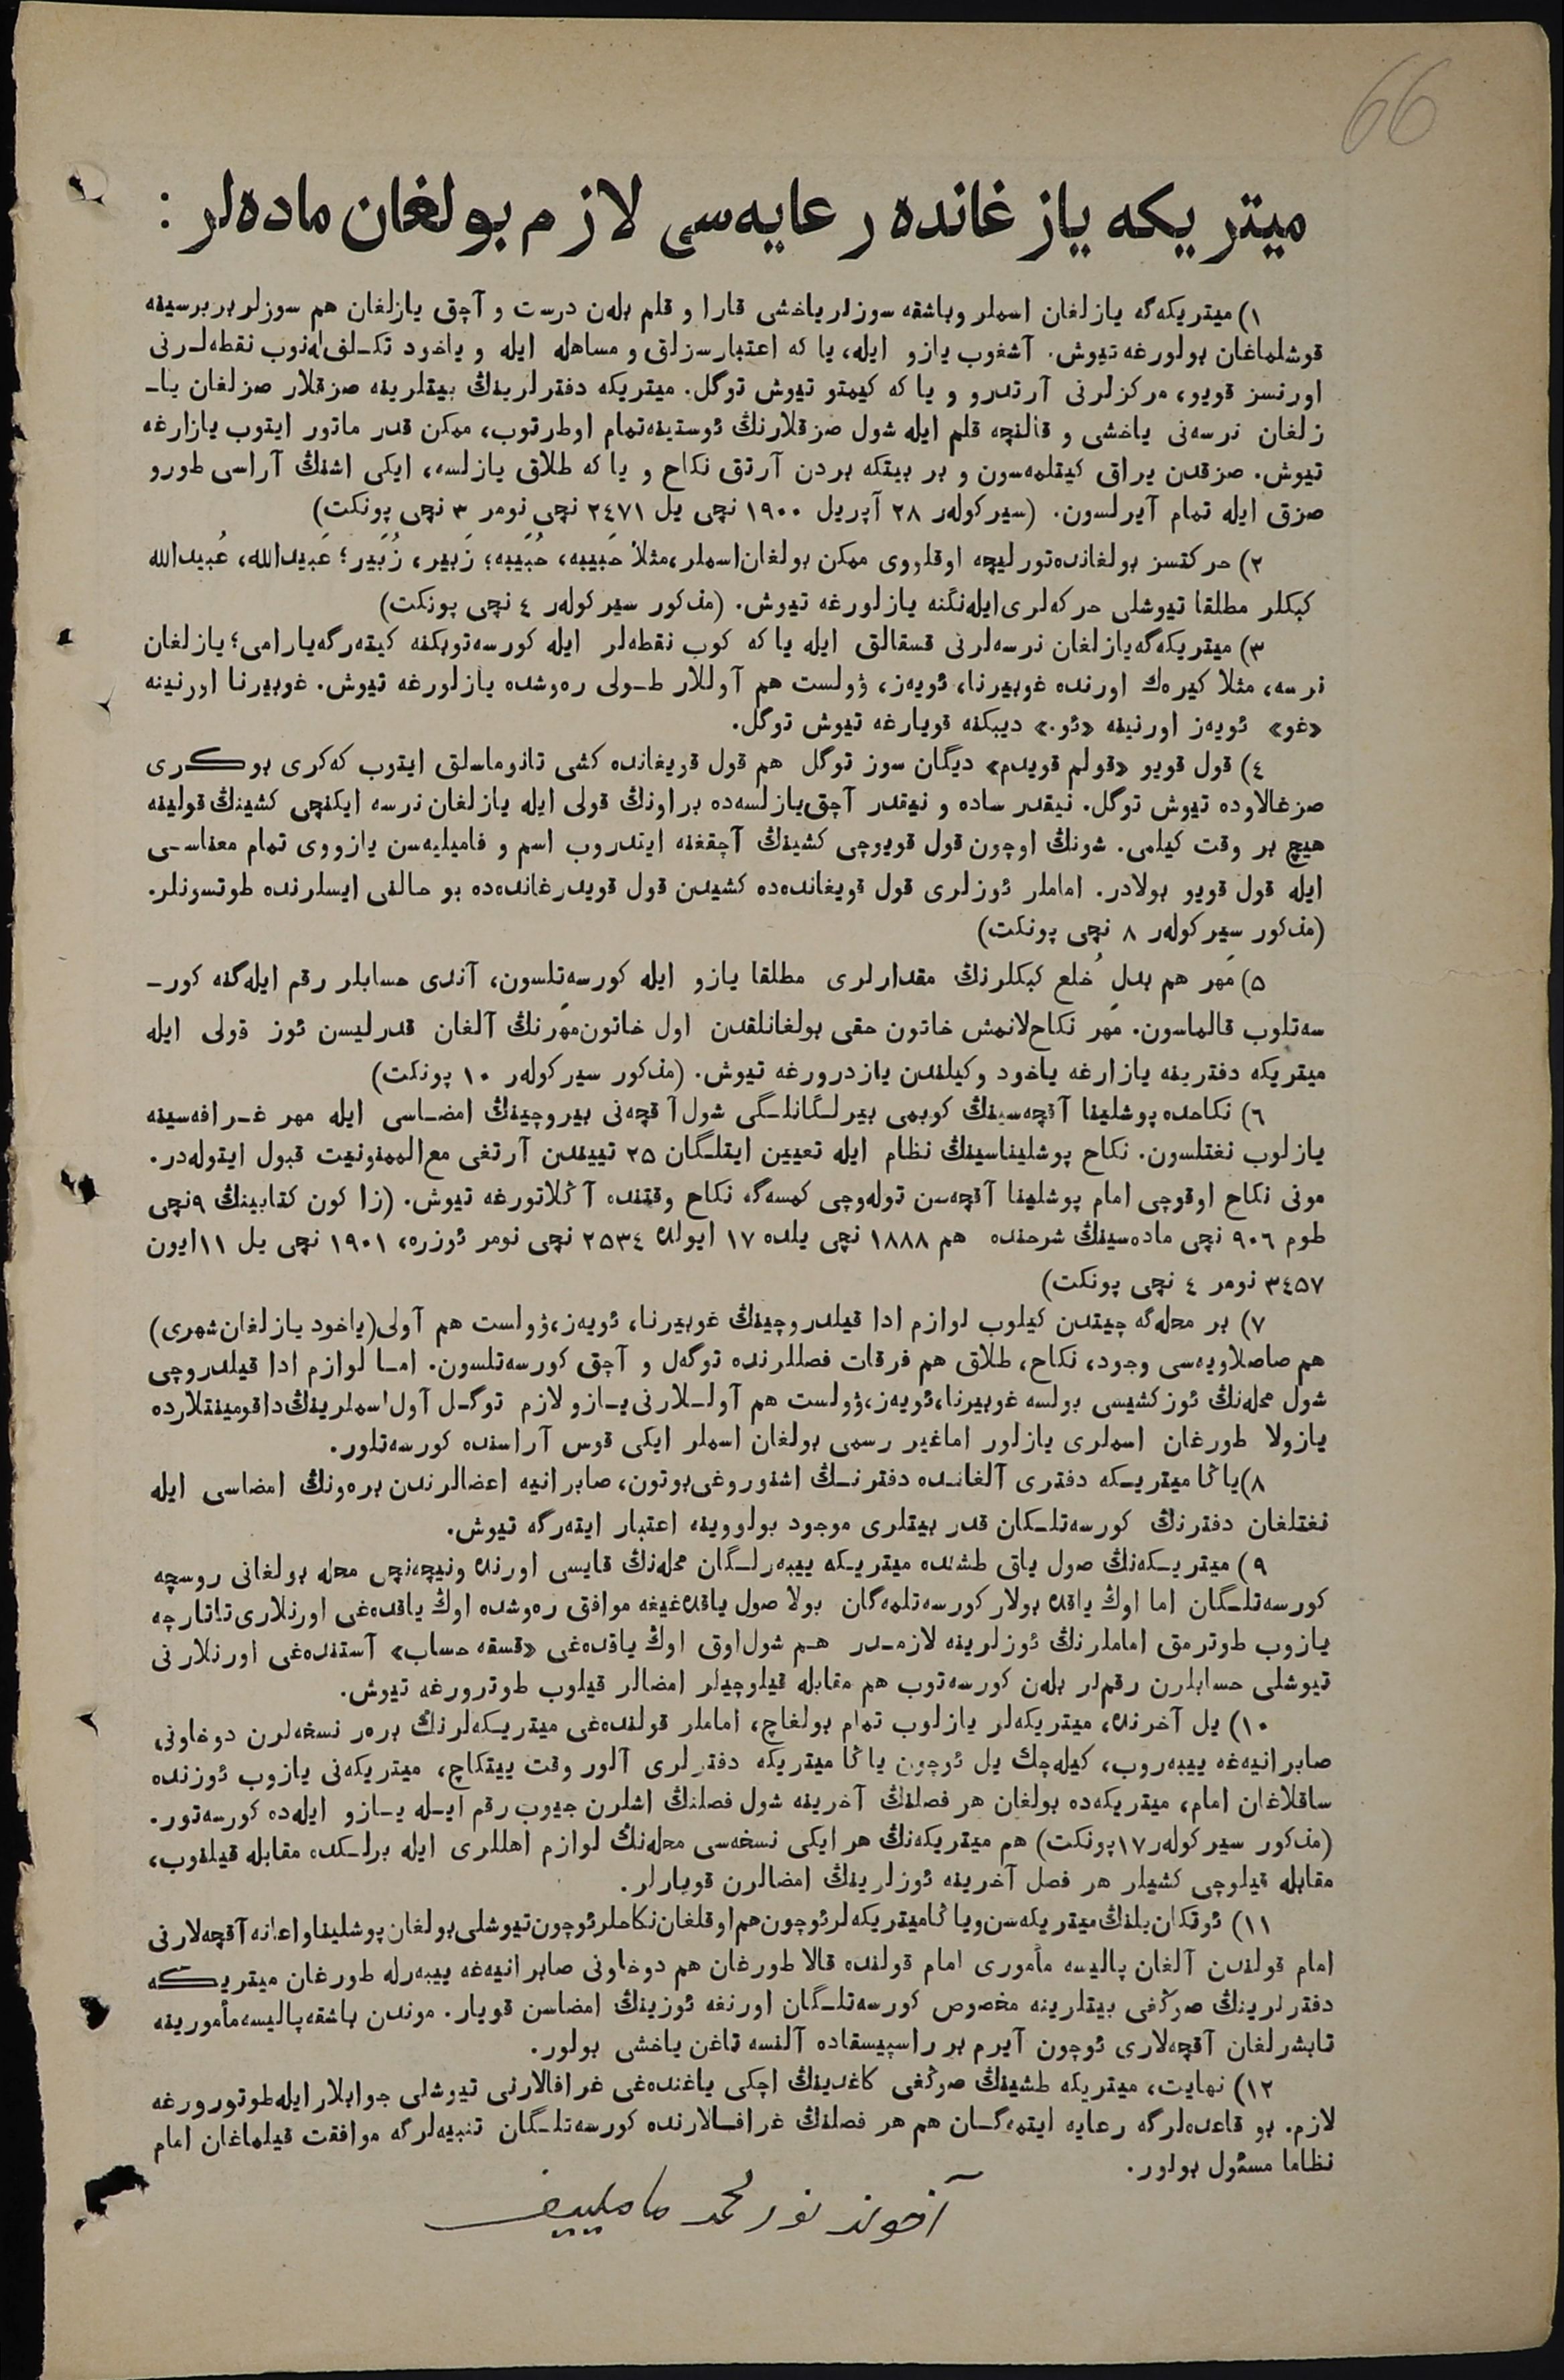 66
ميتريكه يازغانده رعايه‌سى لازم بولغان ماده‌لر :
١) ميتريكه‌گه يازلغان اسملر وباشقه سوزلر ياخشى قارا و قلم بله‌ن درست و آچق يازلغان هم سوزلر بربرسينه
قوشلماغان بولورغه تيوش. آشغوب يازو ايله، يا كه اعتبارسزلق و مساهله ايله و ياخود تكـلف‌له‌نوب نقطه‌لـرنى
اورنسز قويو، مركزلرنى آرتدرو و يا كه كيمتو تيوش توگل. ميتريكه دفترلرينڭ بيتلرينه صزقلار صزلغان يا-
زلغان نرسه‌نى ياخشى و قالنچه قلم ايله شول صزقلارنڭ ئوستينه‌تمام اوطرتوب، ممكن قدر ماتور ايتوب يازارغه
تيوش. صزقدن يراق كيتلمه‌سون و بر بيتكه بردن آرتق نكاح و يا كه طلاق يازلسه، ايكى اشنڭ آراسى طورو
صزق ايله تمام آيرلسون. (سيركوله‌ر ٢٨ آپريل ١٩٠٠ نچى يل ٢٤٧١ نچى نومر ٣ نچى پونكت)
٢) حركتسز بولغانده‌تورليچه اوقلووى ممكن بولغان‌اسملر،مثلاً حَبيبه، حُبَيبه؛ زَبير، زُبَير؛ عَبيدالله، عُبيدالله
كبكلر مطلقا تيوشلى حركه‌لرى‌ايله‌نگنه يازلورغه تيوش. (مذكور سيركوله‌ر ٤ نچى پونكت)
٣) ميتريكه‌گه‌يازلغان نرسه‌لرنى قسقالق ايله يا كه كوب نقطه‌لر ايله كورسه‌توبكنه كيته‌رگه‌يارامى؛ يازلغان
نرسه، مثلا كيره‌ك اورنده غوبيرنا، ئويه‌ز، ۋولست هم آوللار طـولى ره‌وشده يازلورغه تيوش. غوبيرنا اورنينه
«غو» ئويه‌ز اورنينه «ئو.» ديبكنه قويارغه تيوش توگل.
٤) قول قويو «قولم قويدم» ديگان سوز توگل هم قول قويغانده كشى تانوماسلق ايتوب كه‌كرى بوكرى
صزغالاوده تيوش توگل. نيقدر ساده و نيقدر آچق‌يازلسه‌ده براونڭ قولى ايله يازلغان نرسه ايكنچى كشينڭ قولينه
هيچ بر وقت كيلمى. شونڭ اوچون قول قويوچى كشينڭ آچقغنه ايتدروب اسم و فاميليه‌سن يازووى تمام معناسـى
ايله قول قويو بولادر. اماملر ئوزلرى قول قويغانده‌ده كشيدن قول قويدرغانده‌ده بو حالنى ايسلرنده طوتسونلر.
(مذكور سيركوله‌ر ٨ نچى پونكت)
٥) مَهر هم بدلِ خُلع كبكلرنڭ مقدارلرى مطلقا يازو ايله كورسه‌تلسون، آندى حسابلر رقم ايله‌گنه كور-
سه‌تلوب قالماسون. مَهر نكاح‌لانمش خاتون حقى بولغانلقدن اول خاتون‌مَهرنڭ آلغان قدرليسن ئوز قولى ايله
ميتريكه دفترينه يازارغه ياخود وكيلندن يازدرورغه تيوش. (مذكور سيركوله‌ر ١٠ پونكت)
٦) نكاحده پوشلينا آقچه‌سينڭ كوبمى بيرلـگانلـگى شول آقچه‌نى بيروچينڭ امضـاسى ايله مهر غـرافه‌سينه
يازلوب نغتلسون. نكاح پوشليناسينڭ نظام ايله تعيين ايتلـگان ٢٥ تييندن آرتغى مع‌الممنونيت قبول ايتوله‌در.
مونى نكاح اوقوچى امام پوشلينا آقچه‌سن توله‌وچى كمسه‌گه نكاح وقتنده آڭلاتورغه تيوش. (زا كون كتابينڭ ٩نچى
طوم ٩٠٦ نچى ماده‌سينڭ شرحنده هم ١٨٨٨ نچى يلده ١٧ ايولده ٢٥٣٤ نچى نومر ئوزره، ١٩٠١ نچى يل ١١ايون
٣٤٥٧ نومر ٤ نچى پونكت)
٧) بر محله‌گه چيتدن كيلوب لوازم ادا قيلدروچينڭ غوبيرنا، ئويه‌ز،ۋولست هم آولى(ياخود يازلغان‌شهرى)
هم صاصلاويه‌سى وجود، نكاح، طلاق هم فرقات فصللرنده توگه‌ل و آچق كورسه‌تلسون. امـا لوازم ادا قيلدروچى
شول محله‌نڭ ئوز كشيسى بولسه غوبيرنا،ئويه‌ز،ۋولست هم آولـلارنى يـازو لازم توگـل آول‌اسملرينڭ‌داقومينتلارده
يازولا طورغان اسملرى يازلور اماغير رسمى بولغان اسملر ايكى قوس آراسنده كورسه‌تلور.
٨)ياڭا ميتريـكه دفترى آلغانـده دفترنـڭ اشنوروغى‌بوتون، صابرانيه اعضالرندن بره‌ونڭ امضاسى ايله
نغتلغان دفترنڭ كورسه‌تلـكان قدر بيتلرى موجود بولووينه اعتبار ايته‌رگه تيوش.
٩) ميتريـكه‌نڭ صول ياق طشنده ميتريـكه ييبه‌رلـگان محله‌نڭ قايسى اورنده ونيچه‌نچى محله بولغانى روسچه
كورسه‌تلـگان اما اوڭ ياقده بولار كورسه‌تلمه‌گان بولا صول ياقده‌غيغه موافق ره‌وشده اوڭ ياقده‌غى اورنلارى‌تاتارچه
يازوب طوترمق اماملرنڭ ئوزلرينه لازمـدر هـم شول‌اوق اوڭ ياقده‌غى «قسقه حساب» آستنده‌غى اورنلارنى
تيوشلى حسابلرن رقم‌لر بله‌ن كورسه‌توب هم مقابله قيلوچيلر امضالر قيلوب طوترورغه تيوش.
١٠) يل آخرنده، ميتريكه‌لر يازلوب تمام بولغاچ، اماملر قولنده‌غى ميتريـكه‌لرنڭ بره‌ر نسخه‌لرن دوخاونى
صابرانيه‌غه ييبه‌روب، كيله‌چك يل ئوچون ياڭا ميتريكه دفترلرى آلور وقت ييتكاچ، ميتريكه‌نى يازوب ئوزنده
ساقلاغان امام، ميتريكه‌ده بولغان هر فصلنڭ آخرينه شول فصلنڭ اشلرن جيوب رقم ايـله يـازو ايله‌ده كورسه‌تور.
(مذكور سيركوله‌ر ١٧پونكت) هم ميتريكه‌نڭ هر ايكى نسخه‌سى محله‌نڭ لوازم اهللرى ايله برلـكده مقابله قيلنوب،
مقابله قيلوچى كشيلر هر فصل آخرينه ئوزلرينڭ امضالرن قويارلر.
١١) ئوتكان‌يلنڭ‌ميتريكه‌سن‌وياڭاميتريكه‌لرئوچون‌هم‌اوقلغان‌نكاحلرئوچون‌تيوشلى‌بولغان‌پوشليناواعانه‌آقچه‌لارنى
امام قولندن آلغان پاليسه مأمورى امام قولنده قالا طورغان هم دوخاونى صابرانيه‌غه ييبه‌رله طورغان ميتريكه
دفترلرينڭ صوڭغى بيتلرينه مخصوص كورسه‌تلـگان اورنغه ئوزينڭ امضاسن قويار. موندن باشقه‌پاليسه‌مأمورينه
تابشرلغان آقچه‌لارى ئوچون آيرم بر راسپيسقاده آلنسه تاغن ياخشى بولور.
١٢) نهايت، ميتريكه طشينڭ صوڭغى كاغدينڭ اچكى ياغنده‌غى غرافالارنى تيوشلى جوابلار ايله‌طوتورورغه
لازم. بو قاعده‌لرگه رعايه ايتمه‌گـان هم هر فصلنڭ غرافـالارنده كورسه‌تلـگان تنبيه‌لرگه موافقت قيلماغان امام
نظاما مسئول بولور.
آخوند نورمحمد مامليیف